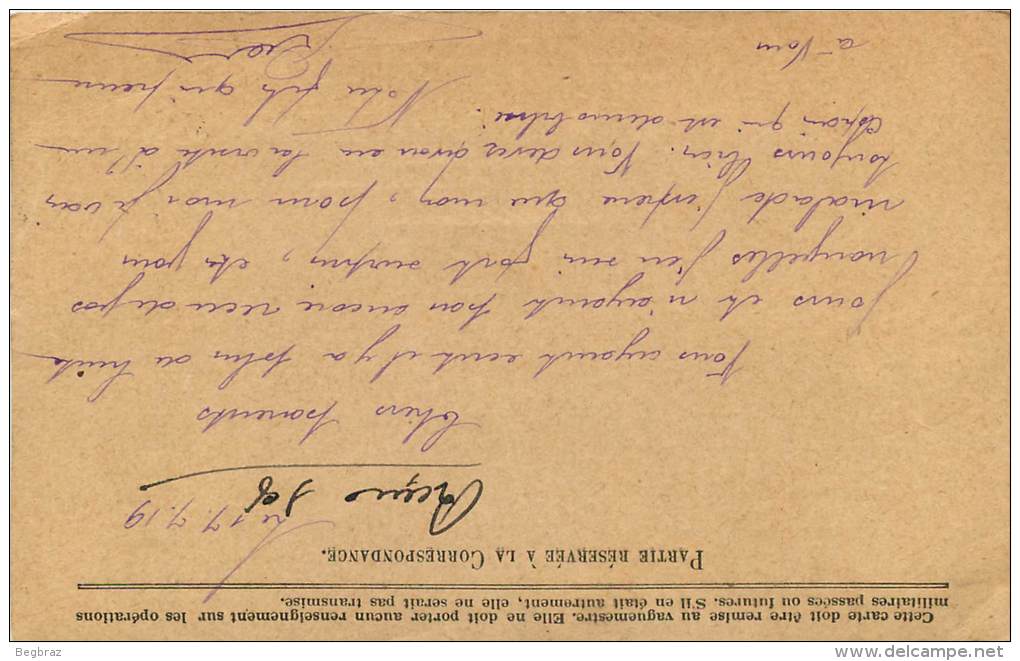 Cette carte doit être remise au vaguemestre. Elle ne doit porter aucun renseignement sur les opérations
militaires passées ou futures. S'il en était autrement, elle ne serait pas transmise.
PARTIE RÉSERVÉE À LA CORRESPONDANCE.
Le 17.7.19
Reçue
Chers parents
Vous ayant ecrit il y a plus de huit
jours et n'ayant pas encore recu de vos
nouvelles j'en suis fort surpris, etes vous
malade j'espere que non, pour moi je vais
toujours bien. Vous devez avoir eu la visite d'un
qui est demobilisé.
Votre fils qui pense
a Vous
Begbraz
www.delcampe.net